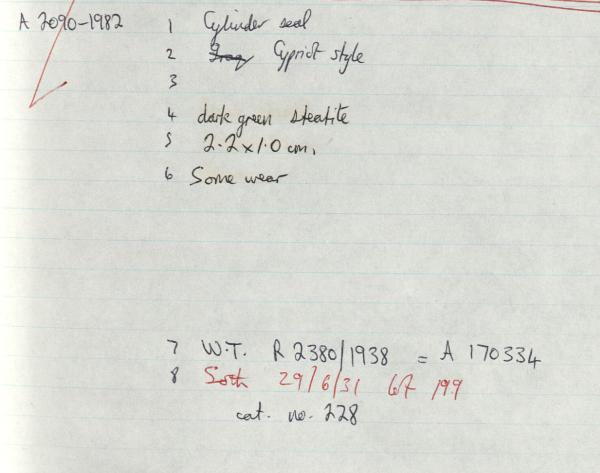 A 2090-1982 1 Cylinder seal
2 Iraq Cypriot style
3
4 dark green steatite
5 2.2 x 1.0 cm.
6 Some wear
7 W.T. R 2380/1938 = A 170334
8 Soth 29/6/31 67 199
cat. no. 228